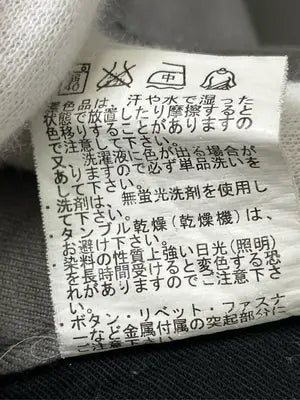 40
中
濃色品は、汗や水で湿った
状態で放置したり摩擦すると
色移りすることがありますの
で注意して下さい。
又、洗濯液に色が出る場合が
ありますので必ず単品洗いを
して下さい。
・洗剤は、無蛍光洗剤を使用し
て下さい。
・タンブル乾燥(乾燥機)は、
お避け下さい。
・染料の性質上強い日光(照明)
を長時間受けると変色する恐
れがありますのでご注意下さ
い。
・ボタン・リベット・ファスナ
ーなど金属付属の突起部分に
ご注意下さい。